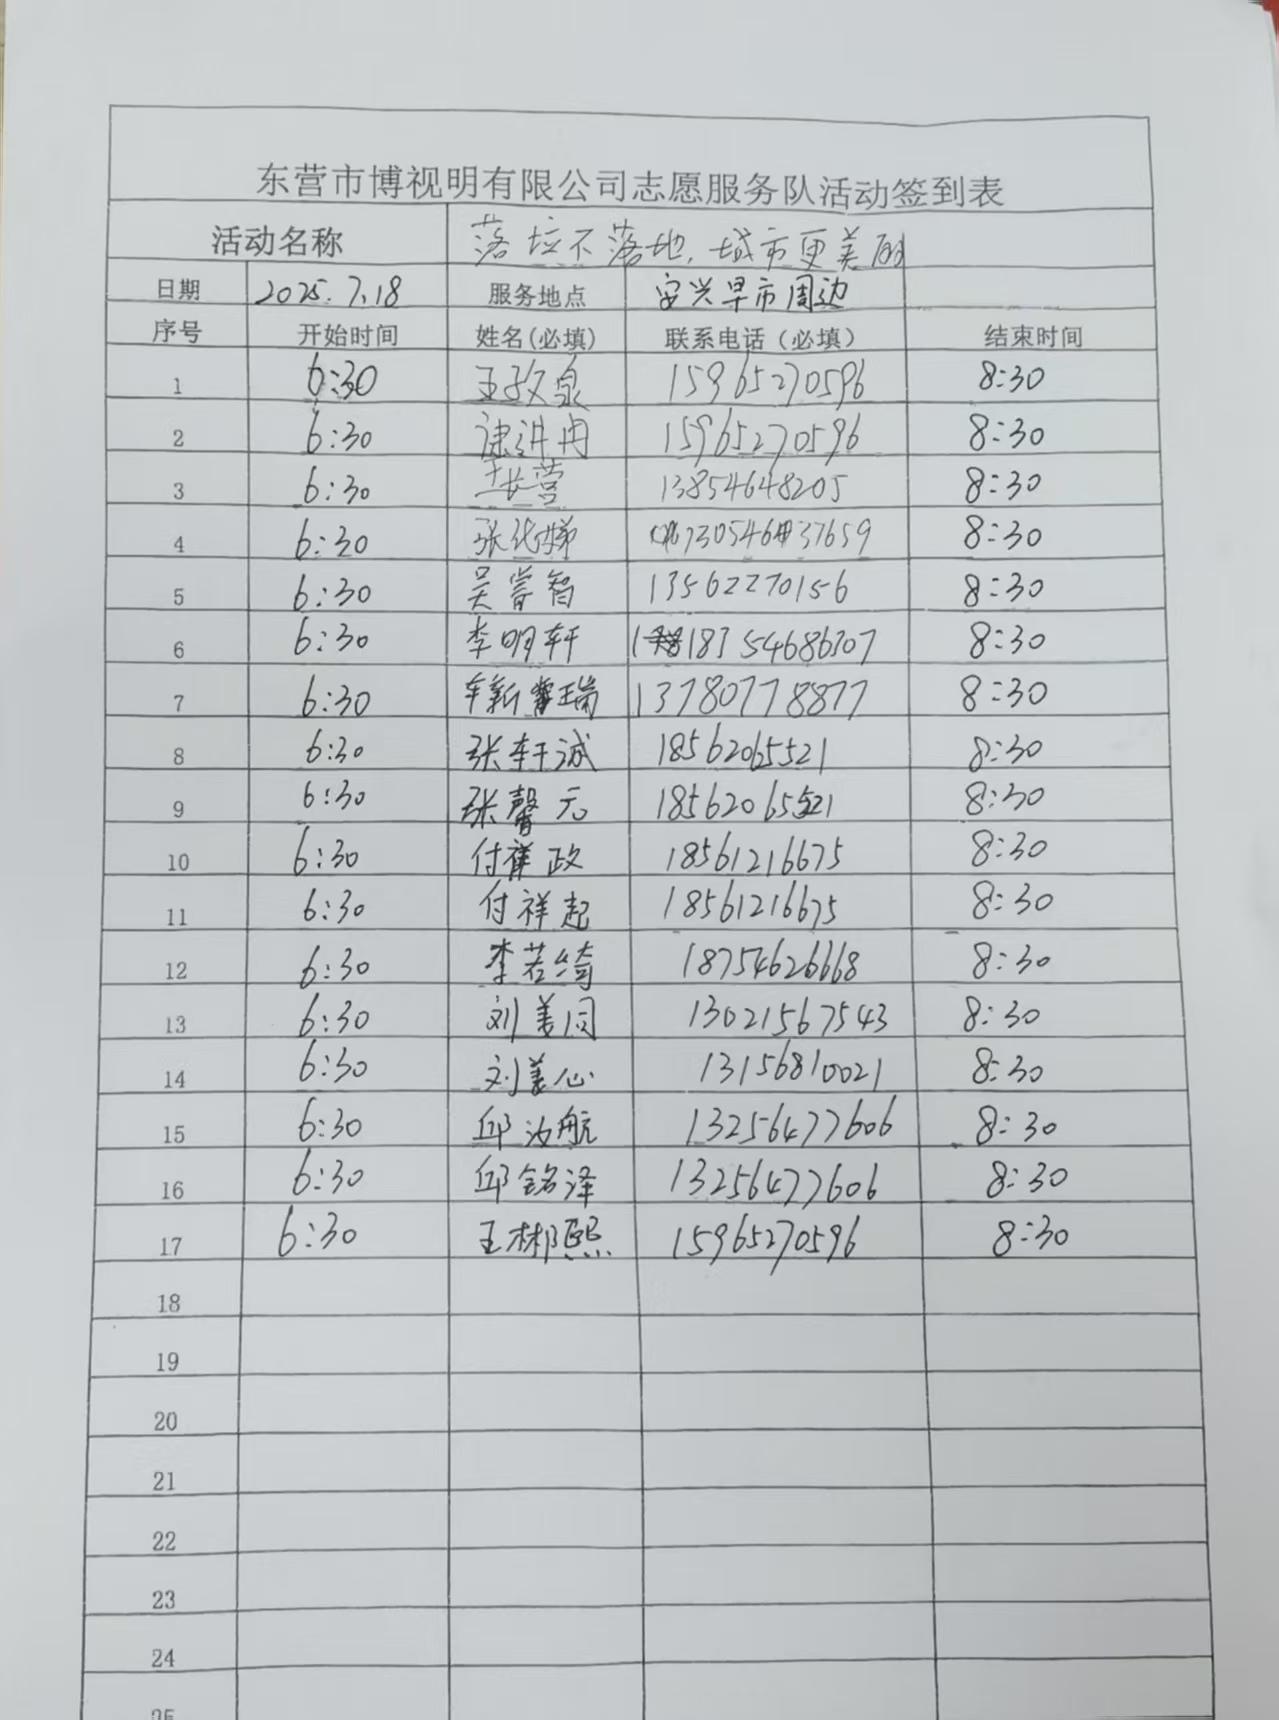 东营市博视明有限公司志愿服务队活动签到表
活动名称 落垃不落地,城市更美丽
日期 2025.7.18 服务地点 安兴早市周边
序号 开始时间 姓名(必填) 联系电话(必填) 结束时间
1 6:30 王孜泉 15965270596 8:30
2 6:30 15965270596 8:30
3 6:30 13854648205 8:30
4 6:30 张 8:30
5 6:30 吴睿智 13562270156 8:30
6 6:30 李明轩 18354686307 8:30
7 6:30 瑞 13780778877 8:30
8 6:30 张轩诚 18562065521 8:30
9 6:30 张馨元 18562065521 8:30
10 6:30 付祥政 18561216675 8:30
11 6:30 付祥起 18561216675 8:30
12 6:30 李若绮 18754626668 8:30
13 6:30 刘美同 13021567543 8:30
14 6:30 刘美心 13156810021 8:30
15 6:30 邱汝航 13256477606 8:30
16 6:30 邱铭泽 13256477606 8:30
17 6:30 王彬熙 15965270596 8:30
18
19
20
21
22
23
24